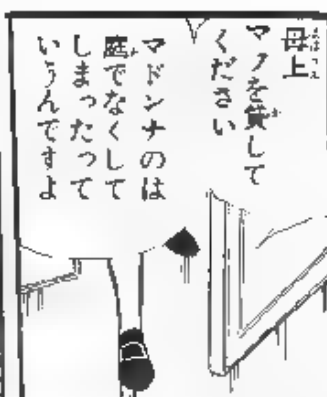 母上
マクを貸して
ください
マドンナのは
庭でなくして
しまったって
いうんですよ